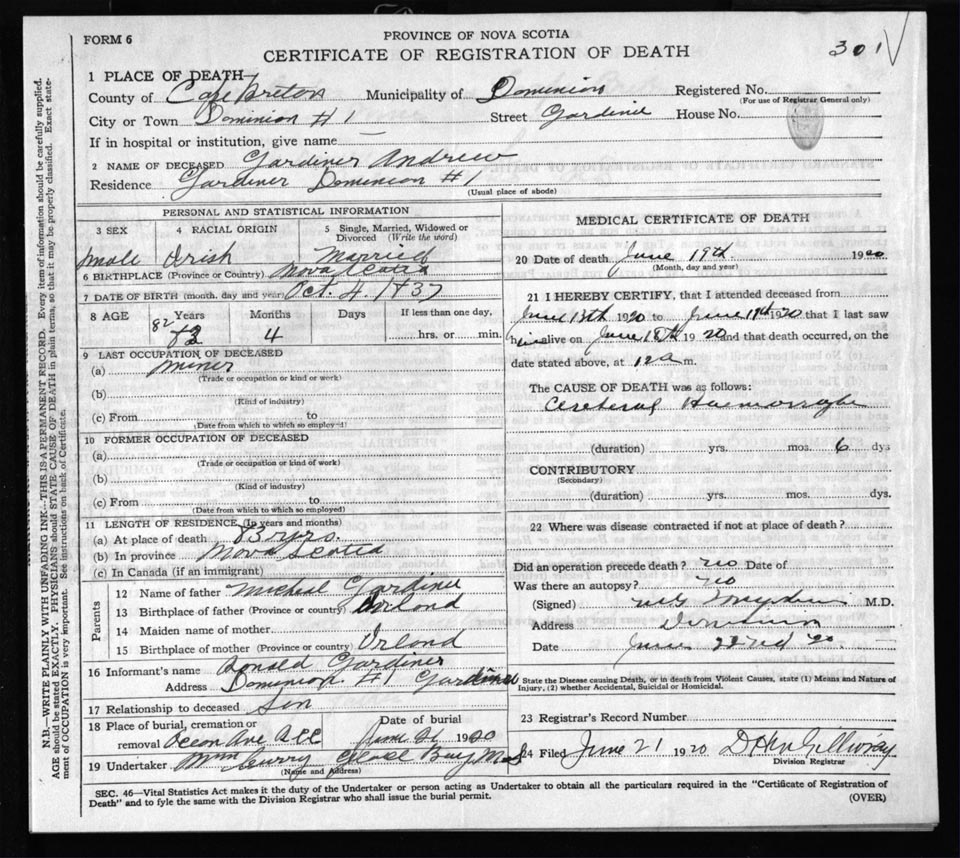 FORM 6
PROVINCE OF NOVA SCOTIA
CERTIFICATE OF REGISTRATION OF DEATH
301
1 PLACE OF DEATH—
County of Cape Breton Municipality of Dominion Registered No.
(For use of Registrar General only)
City or Town Dominion #1 Street Gardiner House No.
If in hospital or institution, give name
2 NAME OF DECEASED Gardiner Andrew
Residence Gardiner Dominion #1
(Usual place of abode)
PERSONAL AND STATISTICAL INFORMATION
3 SEX 4 RACIAL ORIGIN 5 Single, Married, Widowed or Divorced (Write the word)
Male Irish Married
6 BIRTHPLACE (Province or Country) Nova Scotia
7 DATE OF BIRTH (month, day and year) Oct. 4 1837
8 AGE Years Months Days If less than one day,
82 4 hrs. or min.
9 LAST OCCUPATION OF DECEASED
(a) Miner
(Trade or occupation or kind or work)
(b)
(Kind of industry)
(c) From to
(Date from which to which so employed)
10 FORMER OCCUPATION OF DECEASED
(a)
(Trade or occupation or kind of work)
(b)
(Kind of industry)
(c) From to
(Date from which to which so employed)
11 LENGTH OF RESIDENCE (In years and months)
(a) At place of death 83 yrs.
(b) In province Nova Scotia
(c) In Canada (if an immigrant)
Parents
12 Name of father Micheal Gardiner
13 Birthplace of father (Province or country) Irland
14 Maiden name of mother
15 Birthplace of mother (Province or country) Irland
16 Informant's name Ronald Gardiner
Address Dominion #1 Gardiner
17 Relationship to deceased Son
18 Place of burial, cremation or removal Date of burial
Ocean Ave June 21 1920
19 Undertaker Curry Glace Bay
(Name and Address)
MEDICAL CERTIFICATE OF DEATH
20 Date of death June 19th 1920
(Month, day and year)
21 I HEREBY CERTIFY, that I attended deceased from
June 13th 1920 to June 19th 1920 that I last saw
him alive on June 18th 1920 and that death occurred, on the
date stated above, at 12 a m.
The CAUSE OF DEATH was as follows:
Cerebral Haemorrage
(duration) yrs. mos. 6 dys
CONTRIBUTORY
(Secondary)
(duration) yrs. mos. dys.
22 Where was disease contracted if not at place of death?
Did an operation precede death? no Date of
Was there an autopsy? no
(Signed) M.D.
Address Dominion
Date June 22nd 20
State the Disease causing Death, or in death from Violent Causes, state (1) Means and Nature of
Injury, (2) whether Accidental, Suicidal or Homicidal.
23 Registrar's Record Number
24 Filed June 21 1920
Division Registrar
SEC. 46—Vital Statistics Act makes it the duty of the Undertaker or person acting as Undertaker to obtain all the particulars required in the "Certificate of Registration of
Death" and to fyle the same with the Division Registrar who shall issue the burial permit.
(OVER)
N.B.—WRITE PLAINLY WITH UNFADING INK—THIS IS A PERMANENT RECORD. Every item of information should be carefully supplied.
AGE should be stated EXACTLY. PHYSICIANS should STATE CAUSE OF DEATH in plain terms, so that it may be properly classified. Exact state-
ment of OCCUPATION is very important. See instructions on back of Certificate.